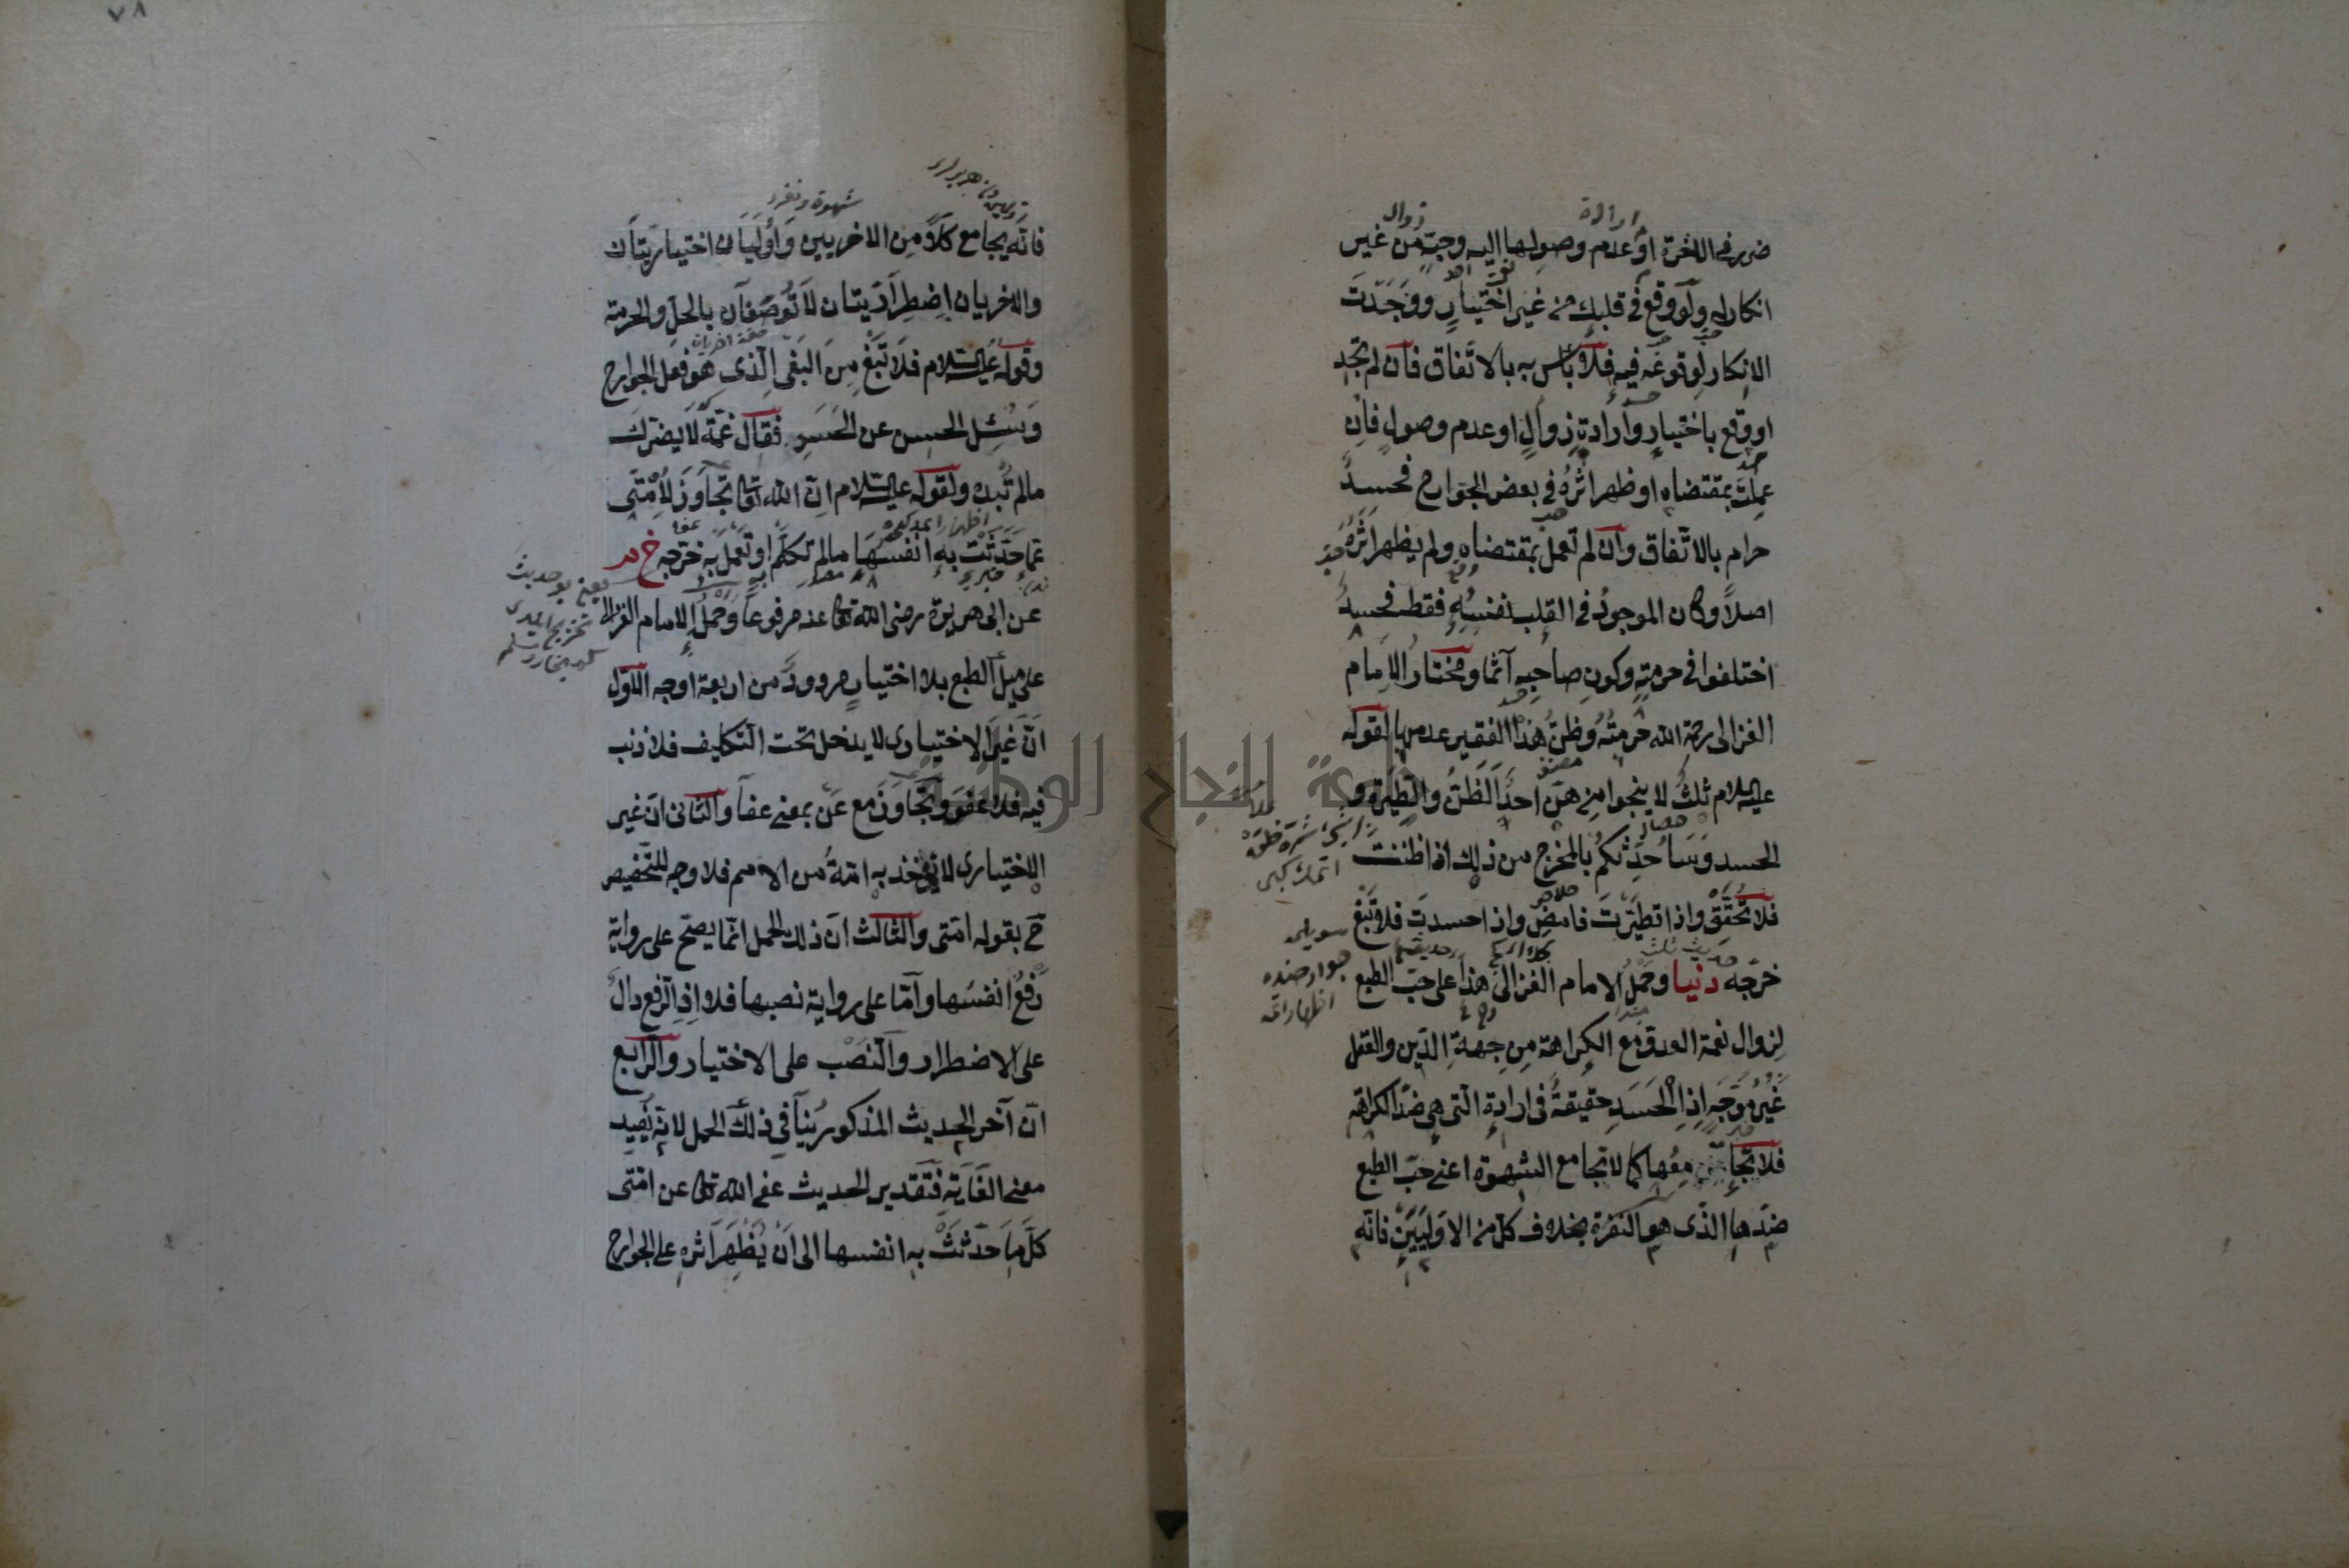 ضرر في الآخرة او عدم وصولها اليه وجبّه من غير
انكار له ولو وقع في قلبك من غير اختيار ووجدت
الانكار لوقوعه فيه فلا بأس به بالاتّفاق فان لم تجد
او وقع باختيار وارادة زوال او عدم وصول فان
عملت بمقتضاه او ظهر اثره في بعض الجوارح فحسد
حرام بالاتّفاق وان لم تعمل بمقتضاه ولم يظهر اثره
اصلاً وكان الموجود في القلب نفسه فقط فحسد
اختلفوا في حرمته وكون صاحبه آثما ومختار الامام
الغزالى رحمة الله حرمته وظنّ هذا الفقير عدمها لقوله
عليه السلام ثلث لا ينجوا منهنّ احد الظنّ والطيرة و
الحسد وساُحدّثكم بالمخرج من ذلك اذا ظننت
فلا تحقّق واذا تطيّرت فامض واذا حسدت فلا تبغ
خرّجه دنيا وحمل الامام الغزالى هذا على حبّ الطبع
لزوال نعمة العدوّ مع الكراهة من جهة الدّين والعقل
غير موجّه اذ الحسد حقيقة في ارادة التى هي ضدّ الكراهة
فلا تجامعها كما لا تجامع الشهوة اعنى حبّ الطبع
ضدّها الذى هو النفرة بخلاف كلّ من الاوليين فانّه
٧٨
شهوة ونفرة
فانّه يجامع كلاًّ من الاخريين واُوليان اختياريّتان
والاخريان اضطراريّتان لا توصفان بالحلّ والحرمة
وقوله عليه السلام فلا تبغ من البغى الّذى هو فعل الجوارح
وسئل الحسن عن الحسد فقال غمّه لا يضرّك
مالم تبده ولقوله عليه السلام انّ الله تعالى تجاوز لاُمّتى
عمّا حدّثت به انفسها مالم تكلّم او تعمل به خرّجه خ م
عن ابى هريرة رضى الله تعالى عنه مرفوعاً وحمل الامام الغزالى
على ميل الطبع بلا اختيار مردود من اربعة اوجه الاوّل
انّ غير الاختيارى لا يدخل تحت التكليف فلا ذنب
فيه فلا عفو وتجاوز مع عن بمعنى عفا والثانى انّ غير
الاختيارى لا تؤخذ به امّة من الاُمم فلا وجه للتخصيص
ح بقوله امّتى والثالث انّ ذلك الحمل انّما يصحّ على رواية
رفع انفسها وامّا على رواية نصبها فلا اذ الرفع دالّ
على الاضطرار والنصب على الاختيار والرّابع
انّ آخر الحديث المذكور ينافي ذلك الحمل لانّه يفيد
معنى الغاية فتقدير الحديث عفى الله تعالى عن امّتى
كلّ ما حدّثت به انفسها الى ان يظهر اثره على الجوارح